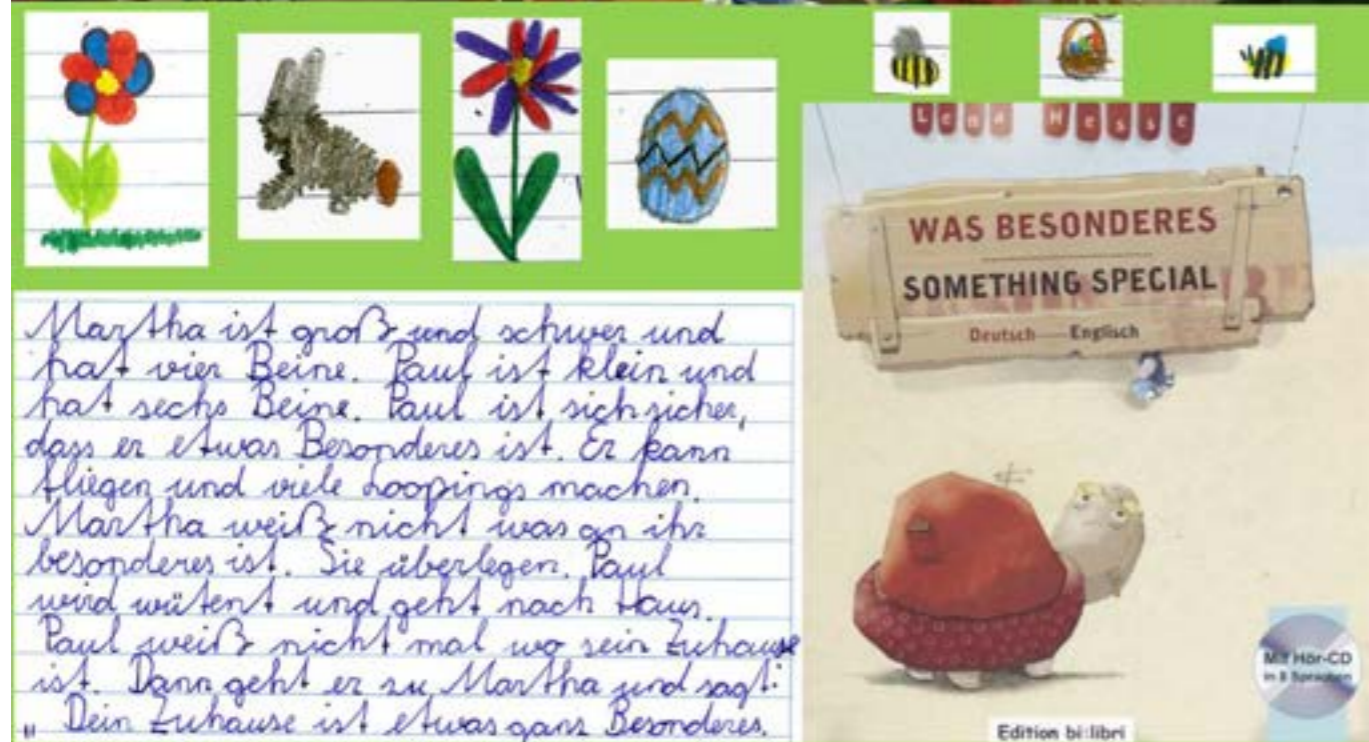 Martha ist groß und schwer und
hat vier Beine. Paul ist klein und
hat sechs Beine. Paul ist sich sicher,
dass er etwas Besonderes ist. Er kann
fliegen und viele Loopings machen.
Martha weiß nicht was an ihr
besonderes ist. Sie überlegen. Paul
wird wütent und geht nach Haus.
Paul weiß nicht mal wo sein Zuhause
ist. Dann geht er zu Martha und sagt:
„ Dein Zuhause ist etwas ganz Besonderes.
Lena Hesse
WAS BESONDERES
SOMETHING SPECIAL
Deutsch Englisch
Mit Hör-CD
in 8 Sprachen
Edition bi:libri